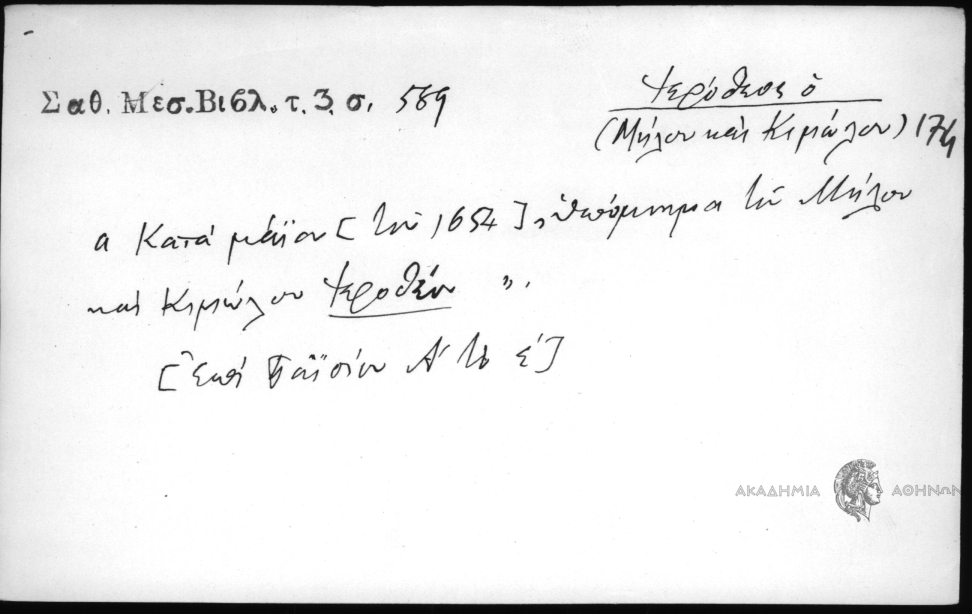 Σαθ. Μεσ. Βιβλ. τ. 3, σ. 589
Ἱερόθεος ὁ
(Μήλου καὶ Κιμώλου) 174
α Κατὰ μάϊον [τοῦ 1654], ὑπόμνημα τοῦ Μήλου
καὶ Κιμώλου Ἱεροθέου ».
[Ἐπὶ Παϊσίου Α΄ τὸ
ΑΚΑΔΗΜΙΑ ΑΘΗΝΩΝ